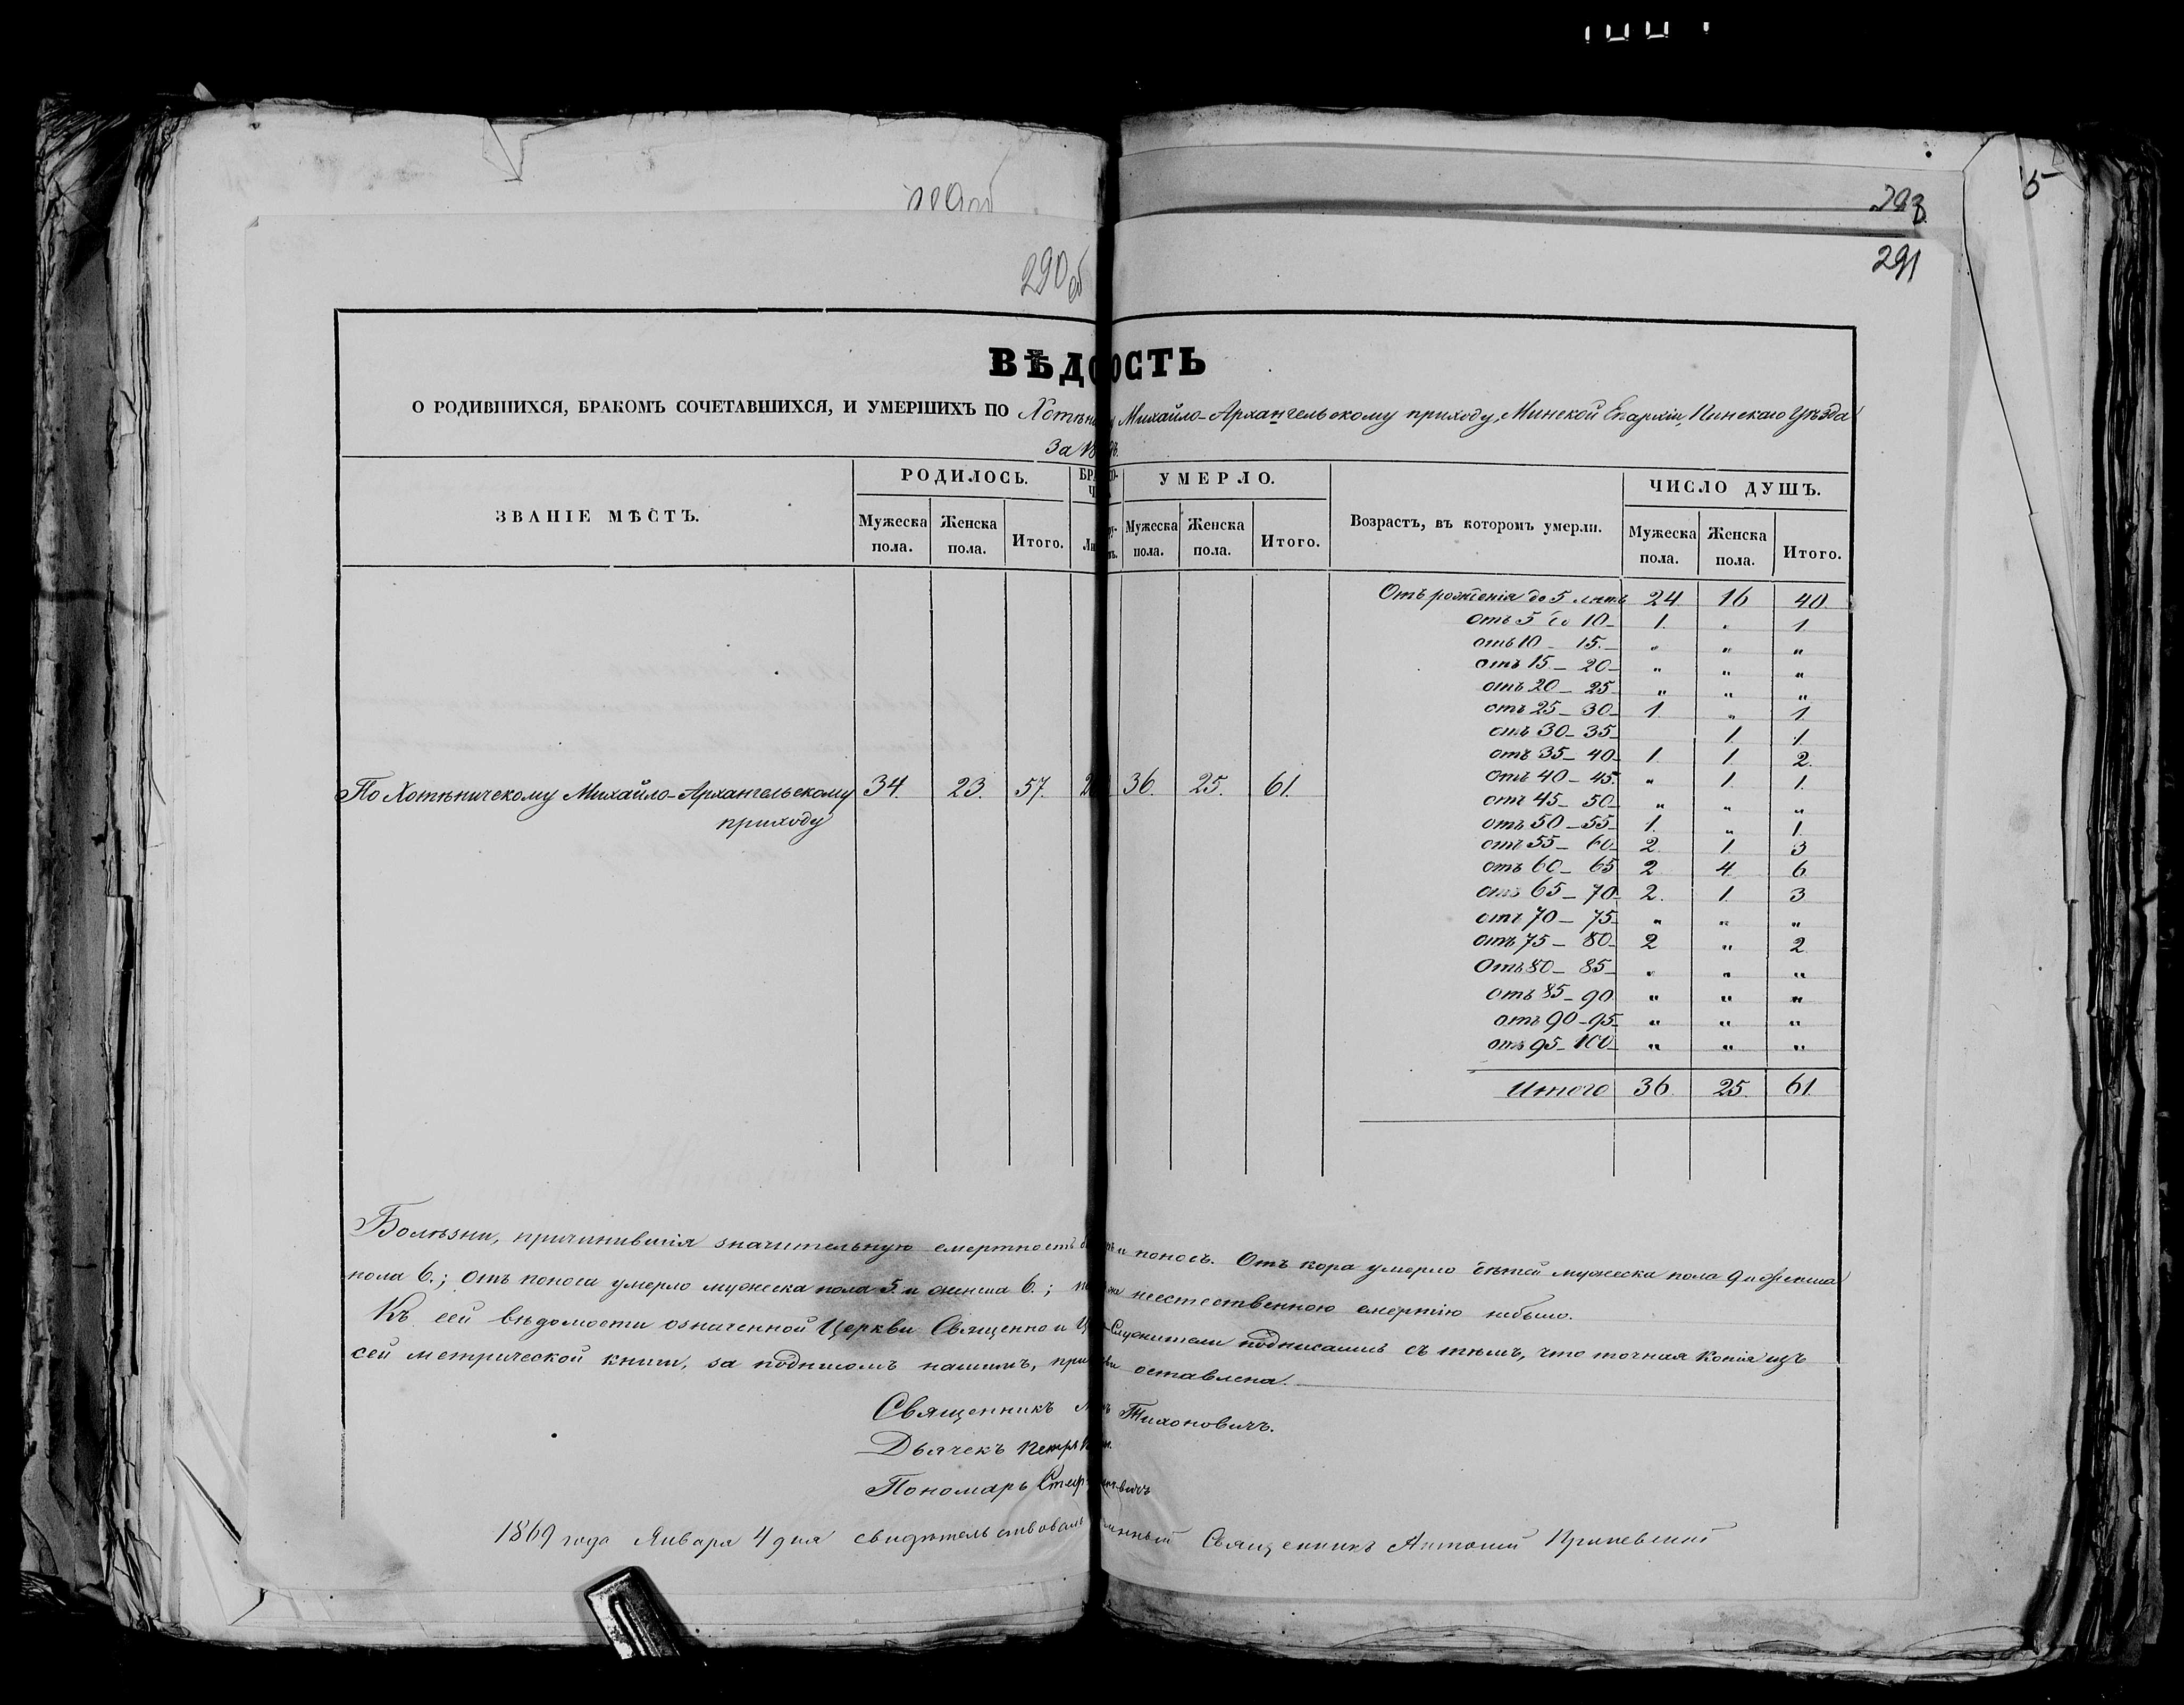 290 об
291
5
ВѢДО ОСТЬ
О РОДИВШИХСЯ, БРАКОМЪ СОЧЕТАВШИХСЯ, И УМЕРШИХЪ ПО Михайло-Архангельскому приходу, Минской Епархіи, Пинскаго Уѣзда
За
ЗВАНІЕ МѢСТЪ.
РОДИЛОСЬ.
Мужеска пола.
Женска пола.
Итого.
УМЕРЛО.
Мужеска пола.
Женска пола.
Итого.
Возрастъ, въ которомъ умерли.
ЧИСЛО ДУШЪ.
Мужеска пола.
Женска пола.
Итого.
Отъ рожденія до 5 лѣтъ 24 16 40
отъ 5 до 10 1. „ 1.
отъ 10 – 15. „ „ „
отъ 15 – 20 „ „ „
отъ 20 – 25 „ „ „
отъ 25 – 30 1. „ 1.
отъ 30 – 35 1. 1.
отъ 35 – 40 1. 1. 2.
отъ 40 – 45. „ 1. 1.
отъ 45 – 50 „ „ „
отъ 50 – 55 1. „ 1.
отъ 55 – 60 2. 1. 3
отъ 60 – 65 2 4. 6.
отъ 65 – 70 2. 1. 3
отъ 70 – 75 „ „ „
отъ 75 – 80 2 „ 2
Отъ 80 – 85 „ „ „
отъ 85 – 90 „ „ „
отъ 90 – 95 „ „ „
отъ 95 – 100 „ „ „
Итого 36. 25. 61.
По Хотѣничскому Михайло-Архангельскому 34. 23. 57. 36. 25. 61.
приходу
Болѣзни, причинившія значительную смертность и поносъ. Отъ кора умерло дѣтей мужеска пола 9 и женска
пола 6.; отъ поноса умерло мужеска пола 5 и женска 6.; неестественною смертію небыло.
Къ сей вѣдомости означенной Церкви Священно и Служители подписались съ тѣмъ, что точная копія изъ
сей метрической книги, за подписомъ нашимъ, при оставлена.
Священникъ Тихоновичъ.
Дьячекъ Петръ
Пономарь
1869 года Января 4 дня свидѣтельствовалъ Священникъ Антоній